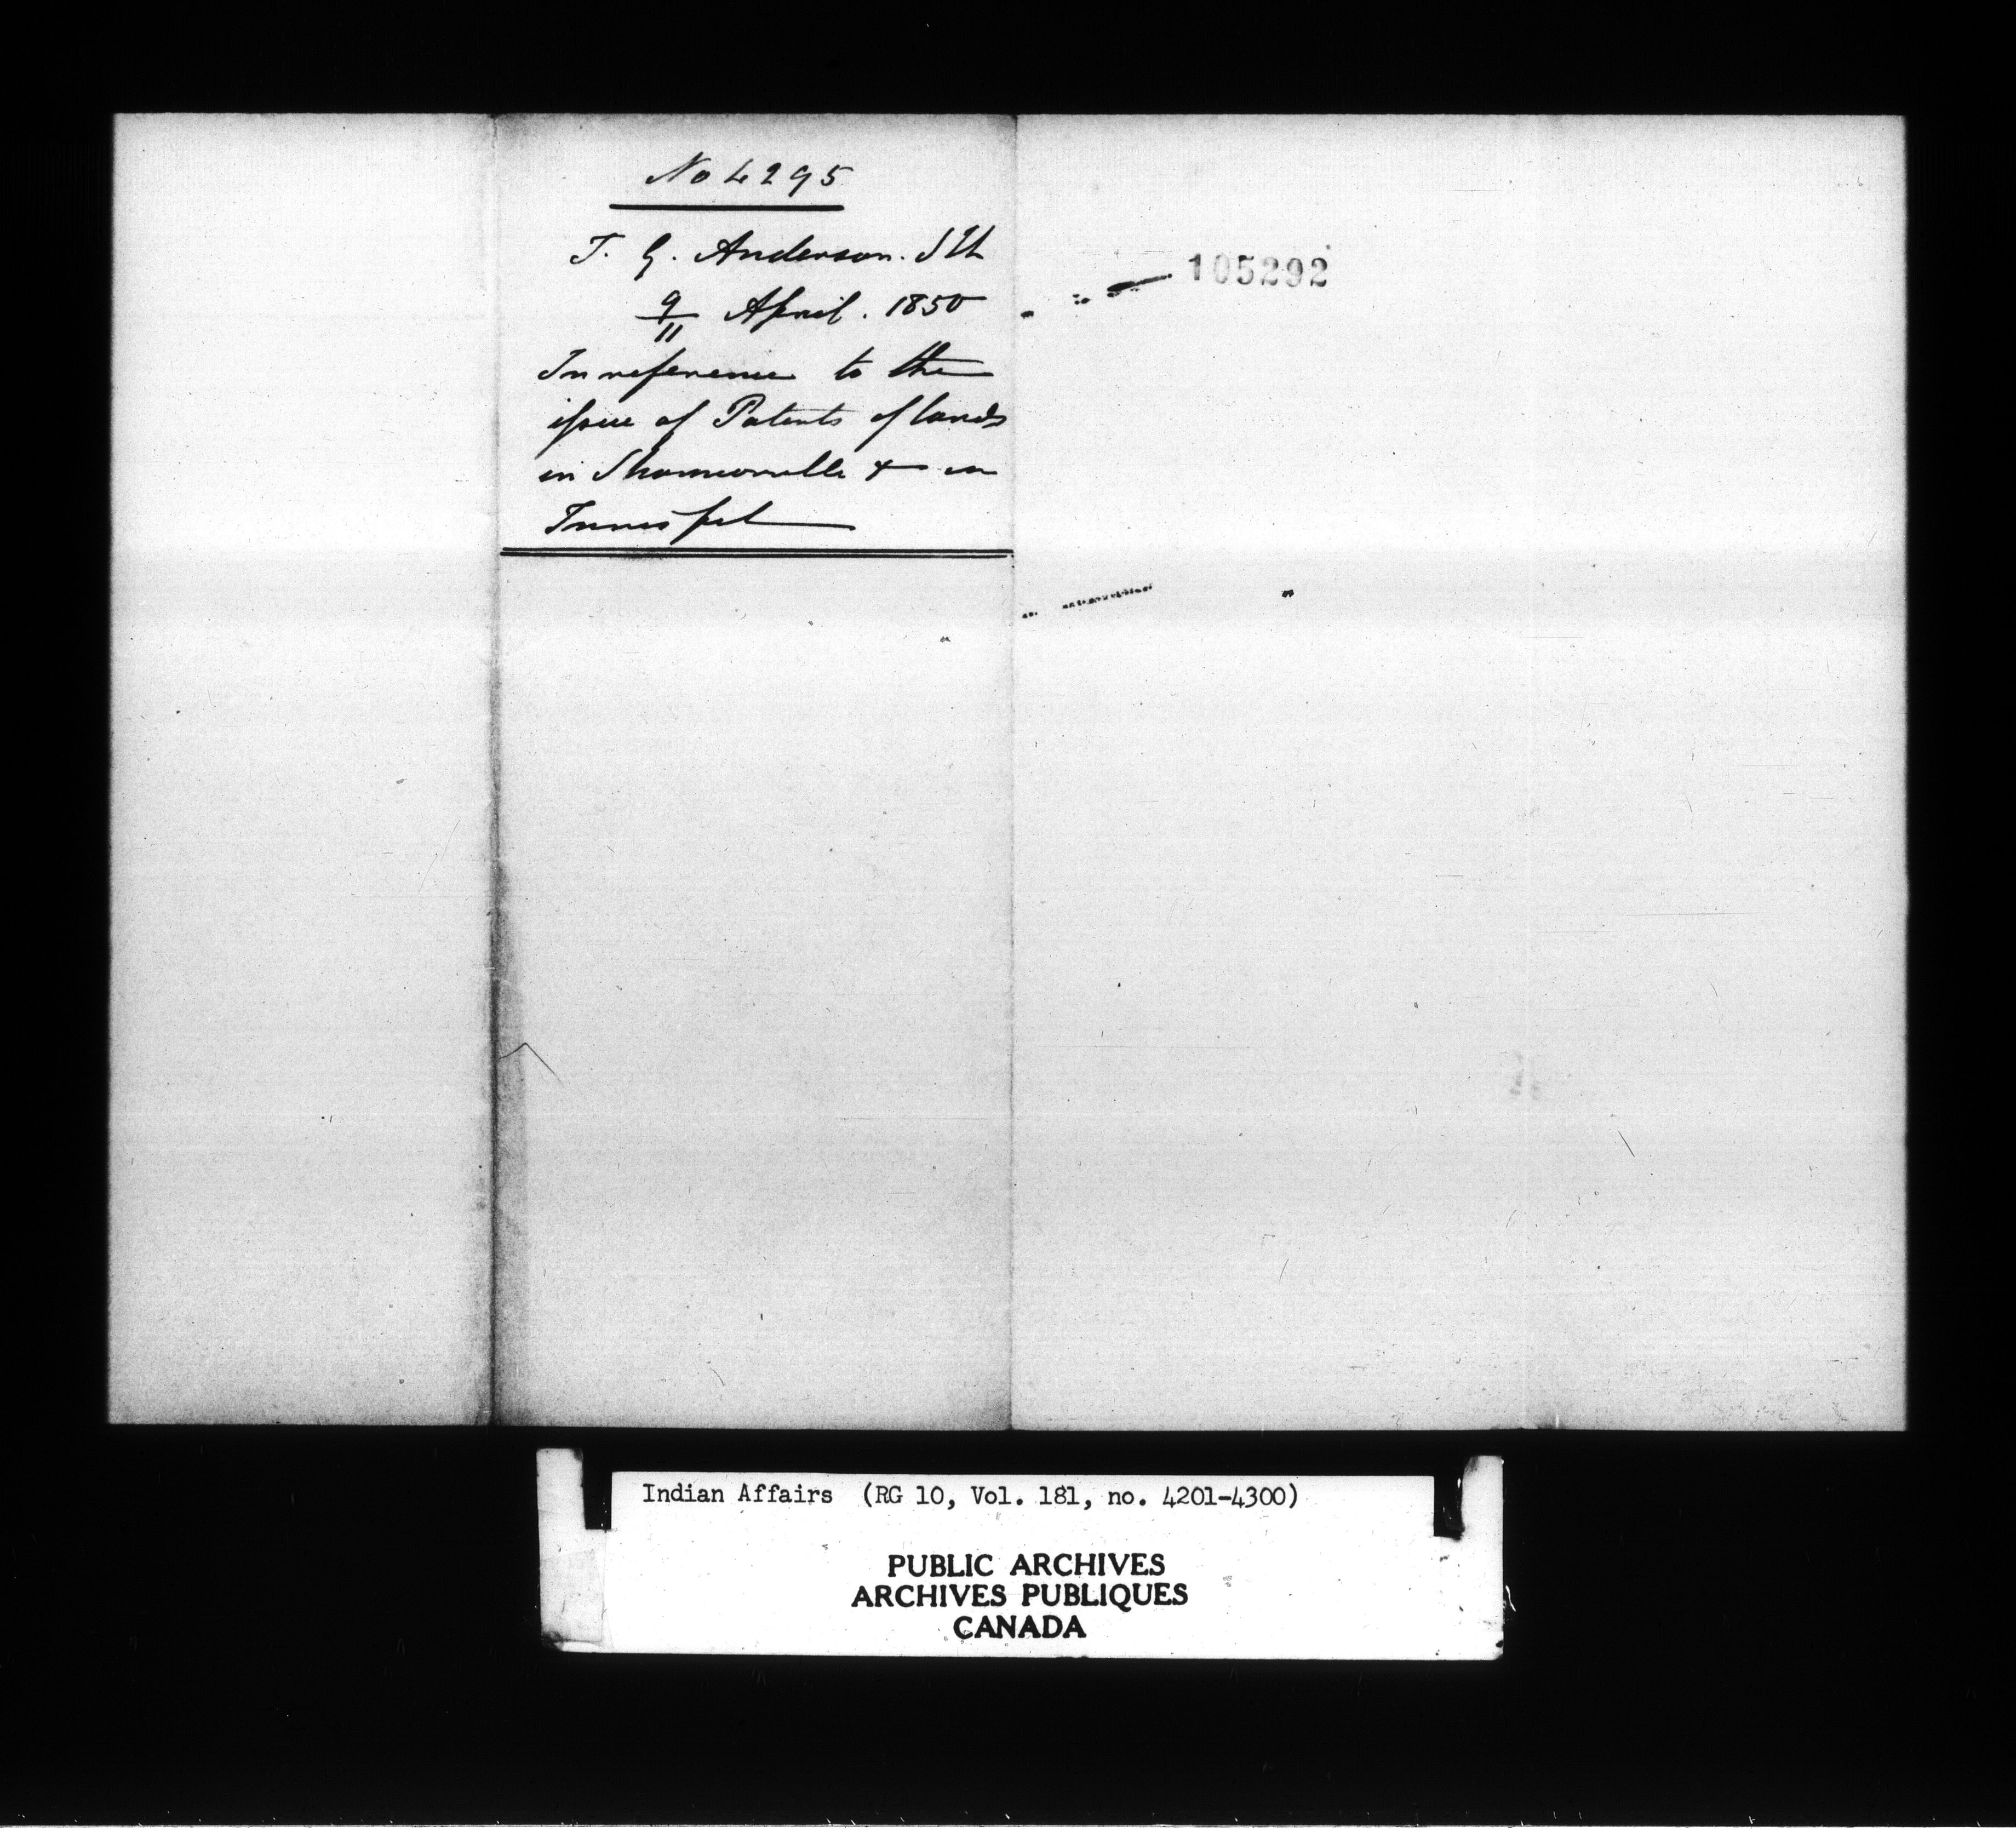 No 4295
T. G. Anderson. SIA
9/11 April. 1850
In reference to the
issue of Patents of lands
in Shannonville & in
Innisfil
105292
Indian Affairs (RG 10, Vol. 181, no. 4201-4300)
PUBLIC ARCHIVES
ARCHIVES PUBLIQUES
CANADA